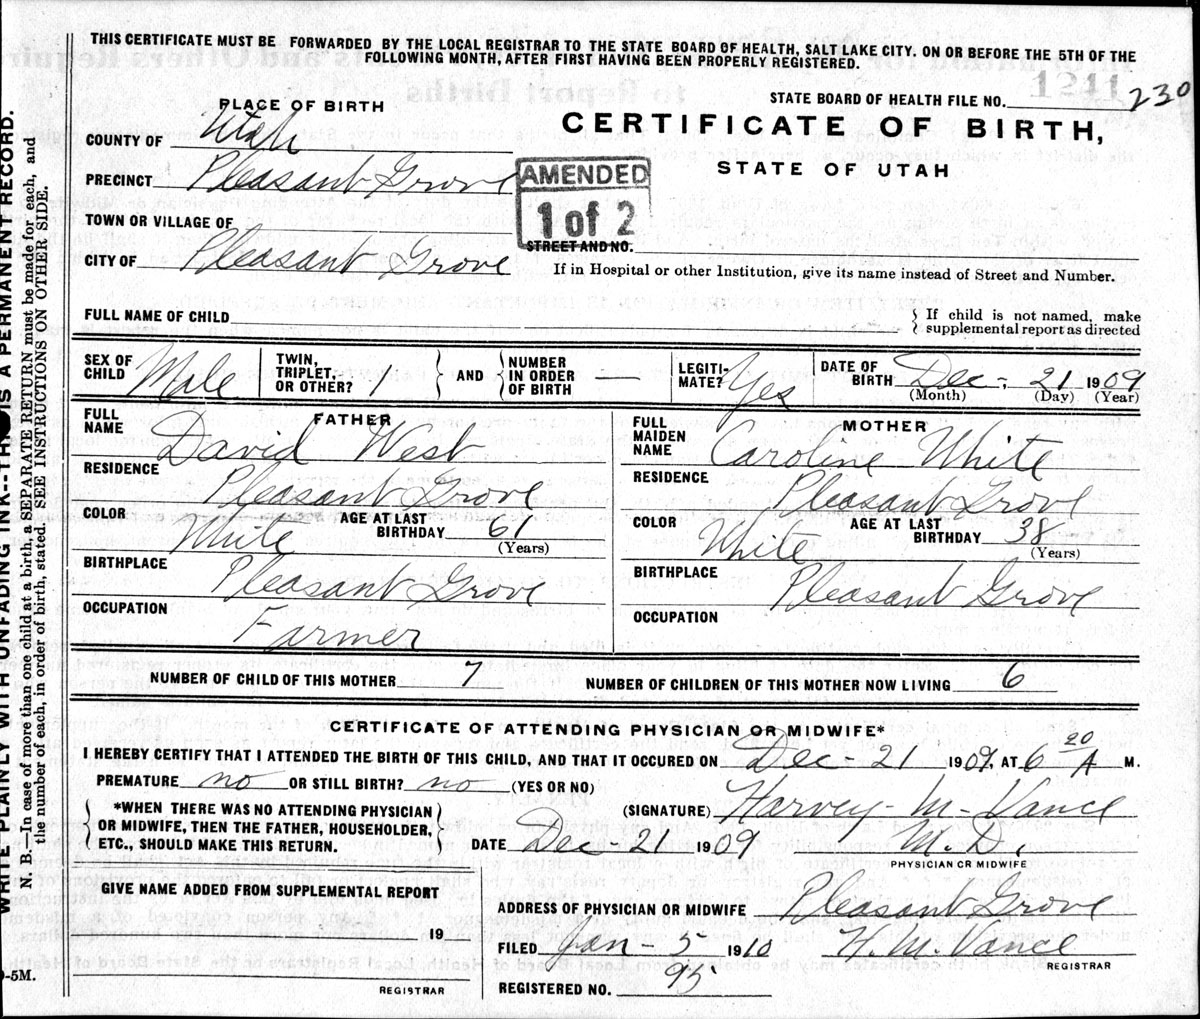 THIS CERTIFICATE MUST BE FORWARDED BY THE LOCAL REGISTRAR TO THE STATE BOARD OF HEALTH, SALT LAKE CITY, ON OR BEFORE THE 5TH OF THE
FOLLOWING MONTH, AFTER FIRST HAVING BEEN PROPERLY REGISTERED.
PLACE OF BIRTH
STATE BOARD OF HEALTH FILE NO. 1241 230
COUNTY OF Utah
CERTIFICATE OF BIRTH,
STATE OF UTAH
PRECINCT Pleasant Grove
AMENDED
1 of 2
TOWN OR VILLAGE OF
STREET AND NO.
CITY OF Pleasant Grove
If in Hospital or other Institution, give its name instead of Street and Number.
FULL NAME OF CHILD
If child is not named, make
supplemental report as directed
SEX OF CHILD Male
TWIN, TRIPLET, OR OTHER? 1
AND
NUMBER IN ORDER OF BIRTH —
LEGITI-MATE? Yes
DATE OF BIRTH Dec - 21 1909
(Month) (Day) (Year)
FATHER
FULL NAME David West
RESIDENCE Pleasant Grove
COLOR White
AGE AT LAST BIRTHDAY 61
(Years)
BIRTHPLACE Pleasant Grove
OCCUPATION Farmer
MOTHER
FULL MAIDEN NAME Caroline White
RESIDENCE Pleasant Grove
COLOR White
AGE AT LAST BIRTHDAY 38
(Years)
BIRTHPLACE Pleasant Grove
OCCUPATION
NUMBER OF CHILD OF THIS MOTHER 7
NUMBER OF CHILDREN OF THIS MOTHER NOW LIVING 6
CERTIFICATE OF ATTENDING PHYSICIAN OR MIDWIFE*
I HEREBY CERTIFY THAT I ATTENDED THE BIRTH OF THIS CHILD, AND THAT IT OCCURED ON Dec - 21 1909, AT 6 20 A M.
PREMATURE no OR STILL BIRTH? no (YES OR NO)
*WHEN THERE WAS NO ATTENDING PHYSICIAN
OR MIDWIFE, THEN THE FATHER, HOUSEHOLDER,
ETC., SHOULD MAKE THIS RETURN.
(SIGNATURE) Harvey M Vance
M. D.
PHYSICIAN OR MIDWIFE
DATE Dec - 21 1909
GIVE NAME ADDED FROM SUPPLEMENTAL REPORT
19
REGISTRAR
ADDRESS OF PHYSICIAN OR MIDWIFE Pleasant Grove
FILED Jan - 5 1910 H. M. Vance
REGISTRAR
REGISTERED NO. 95
WRITE PLAINLY WITH UNFADING INK--THIS IS A PERMANENT RECORD.
N. B.—In case of more than one child at a birth, SEPARATE RETURN must be made for each, and
the number of each, in order of birth, stated. SEE INSTRUCTIONS ON OTHER SIDE.
-5M.